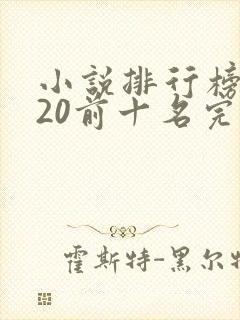 小説排行榜
20前十名完
霍斯特-黑尔特